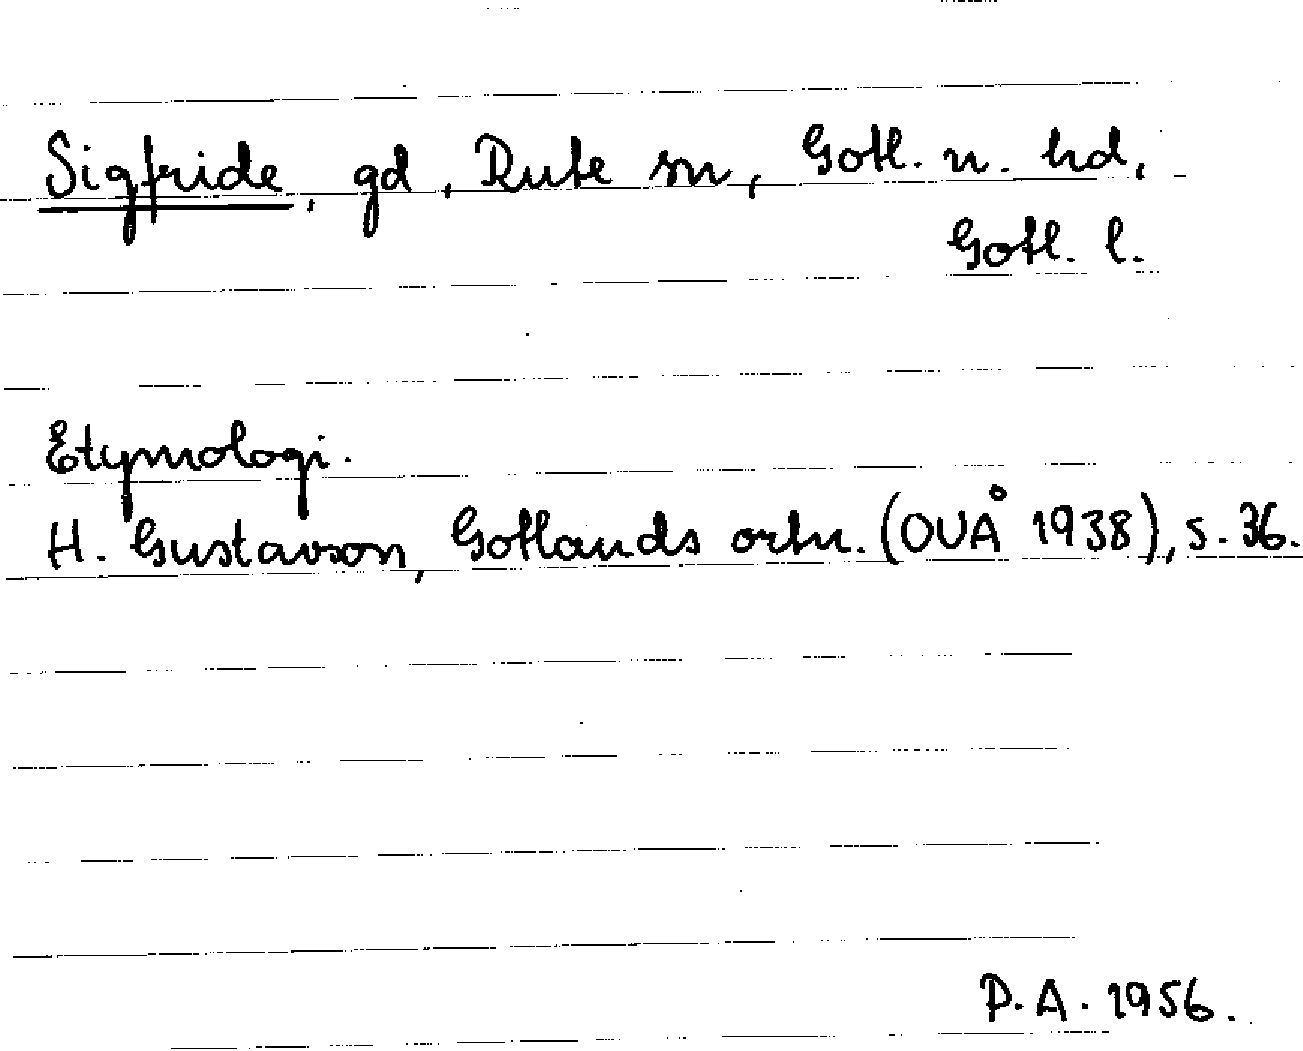 Sigfride, gd, Rute sn, Gotl. n. hd,
Gotl. l.
Etymologi.
H. Gustavson, Gotlands ortn. (OUÅ 1938), s. 36.
P.A. 1956.